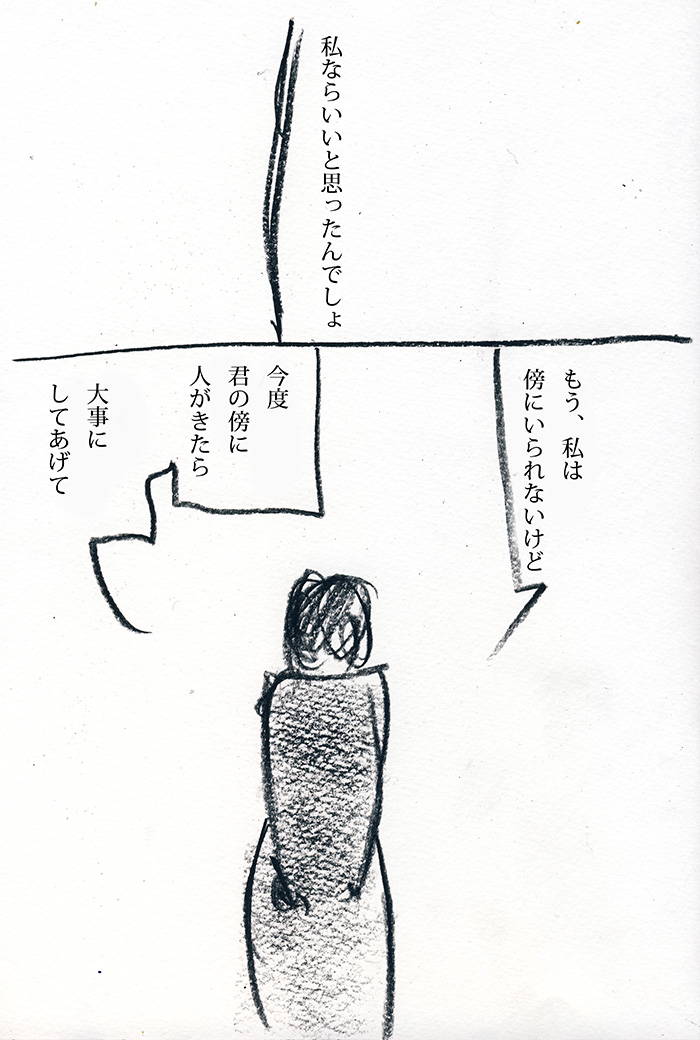 私ならいいと思ったんでしょ
もう、私は
傍にいられないけど
今度
君の傍に
人がきたら
大事に
してあげて